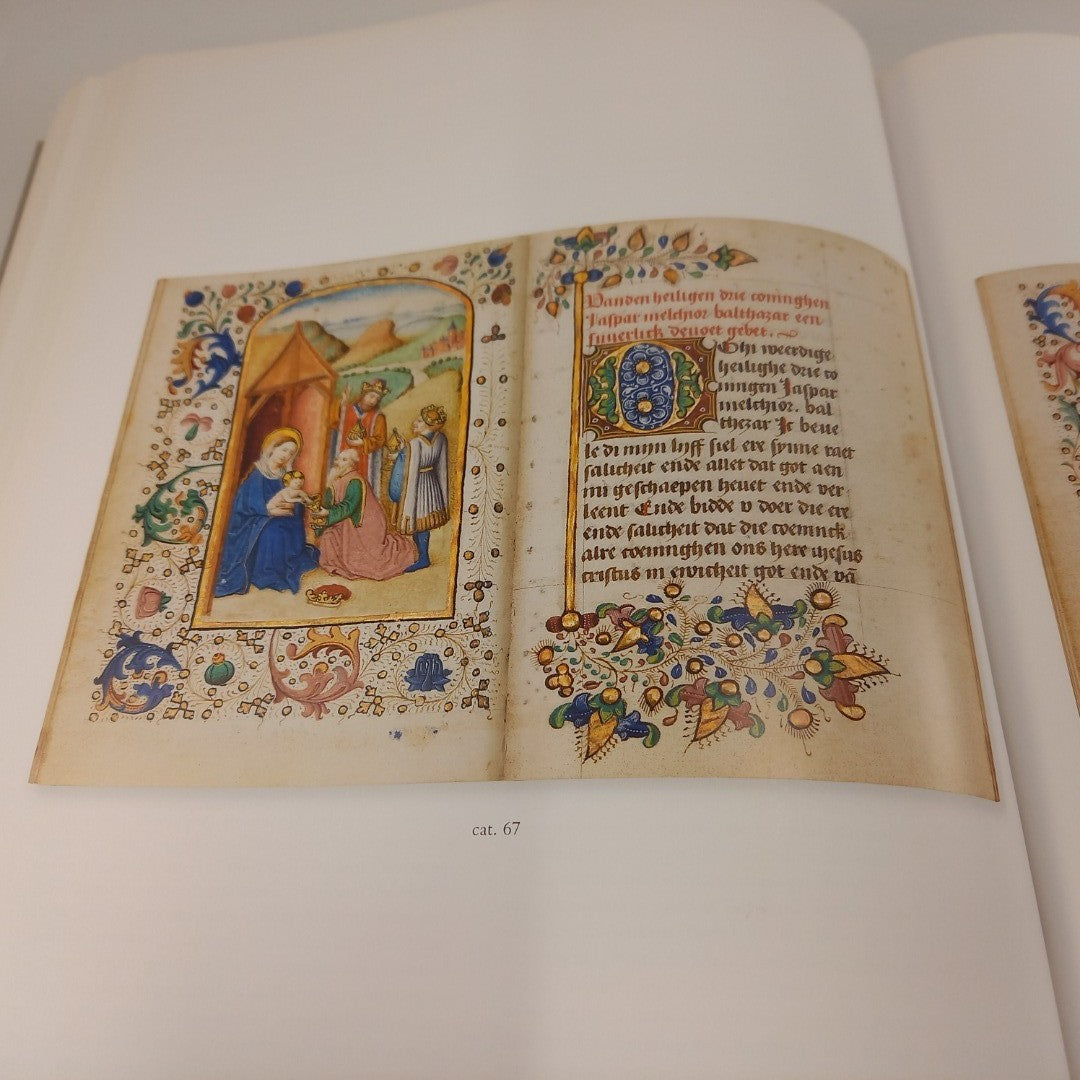 Vanden heiligen drie coninghen
Jaspar melchior balthazar een
suuerlick deuoet gebet.
O Ghi weerdige
heilighe drie co
ningen Jaspar
melchior. bal
thazar Ic beue
le di mijn lyff siel ere synne raet
salicheit ende allet dat got aen
mi geschaepen heuet ende ver
leent Ende bidde v doer die ere
ende salicheit dat die coeninck
alre coeninghen ons here ihesus
cristus in ewicheit got ende vā
cat. 67